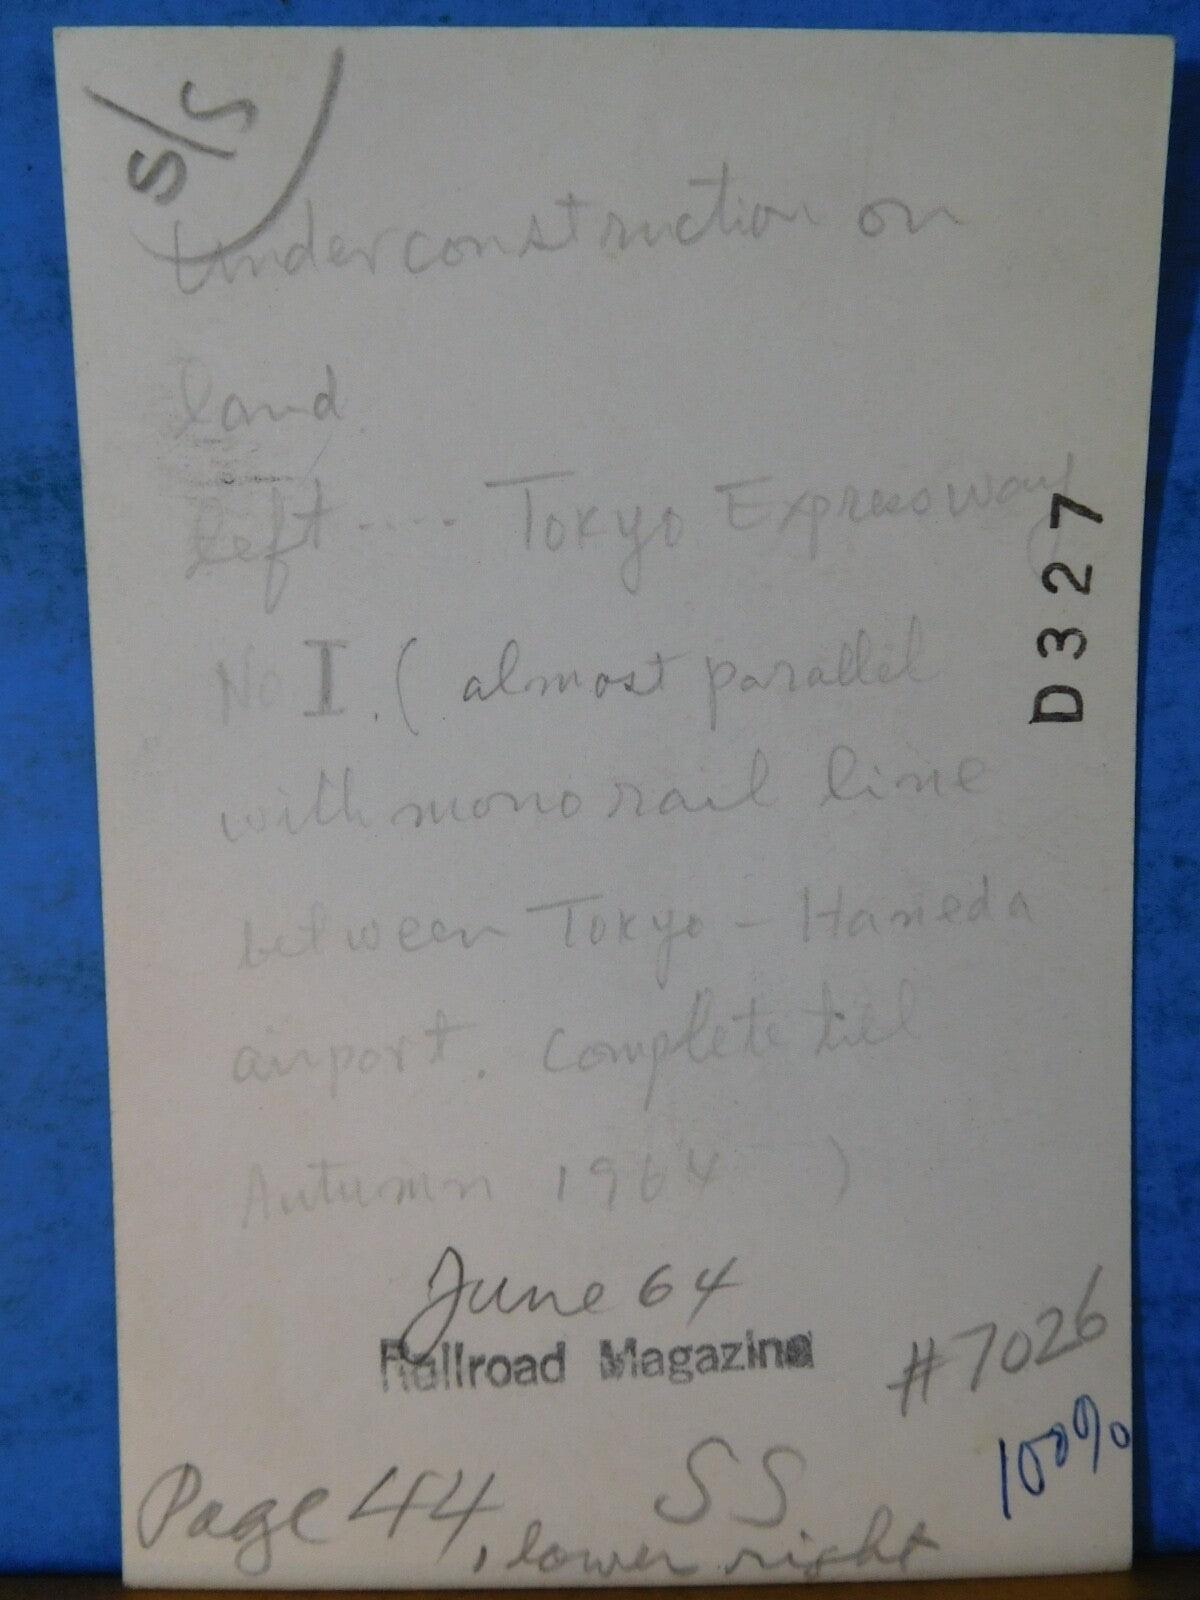 S/S
Underconstruction on
land
left .... Tokyo Expressway
No I. ( almost parallel
with monorail line
between Tokyo - Haneda
airport. Complete till
Autumn 1964 )
D327
June 64
Railroad Magazine
#7026
100%
SS
Page 44, lower right